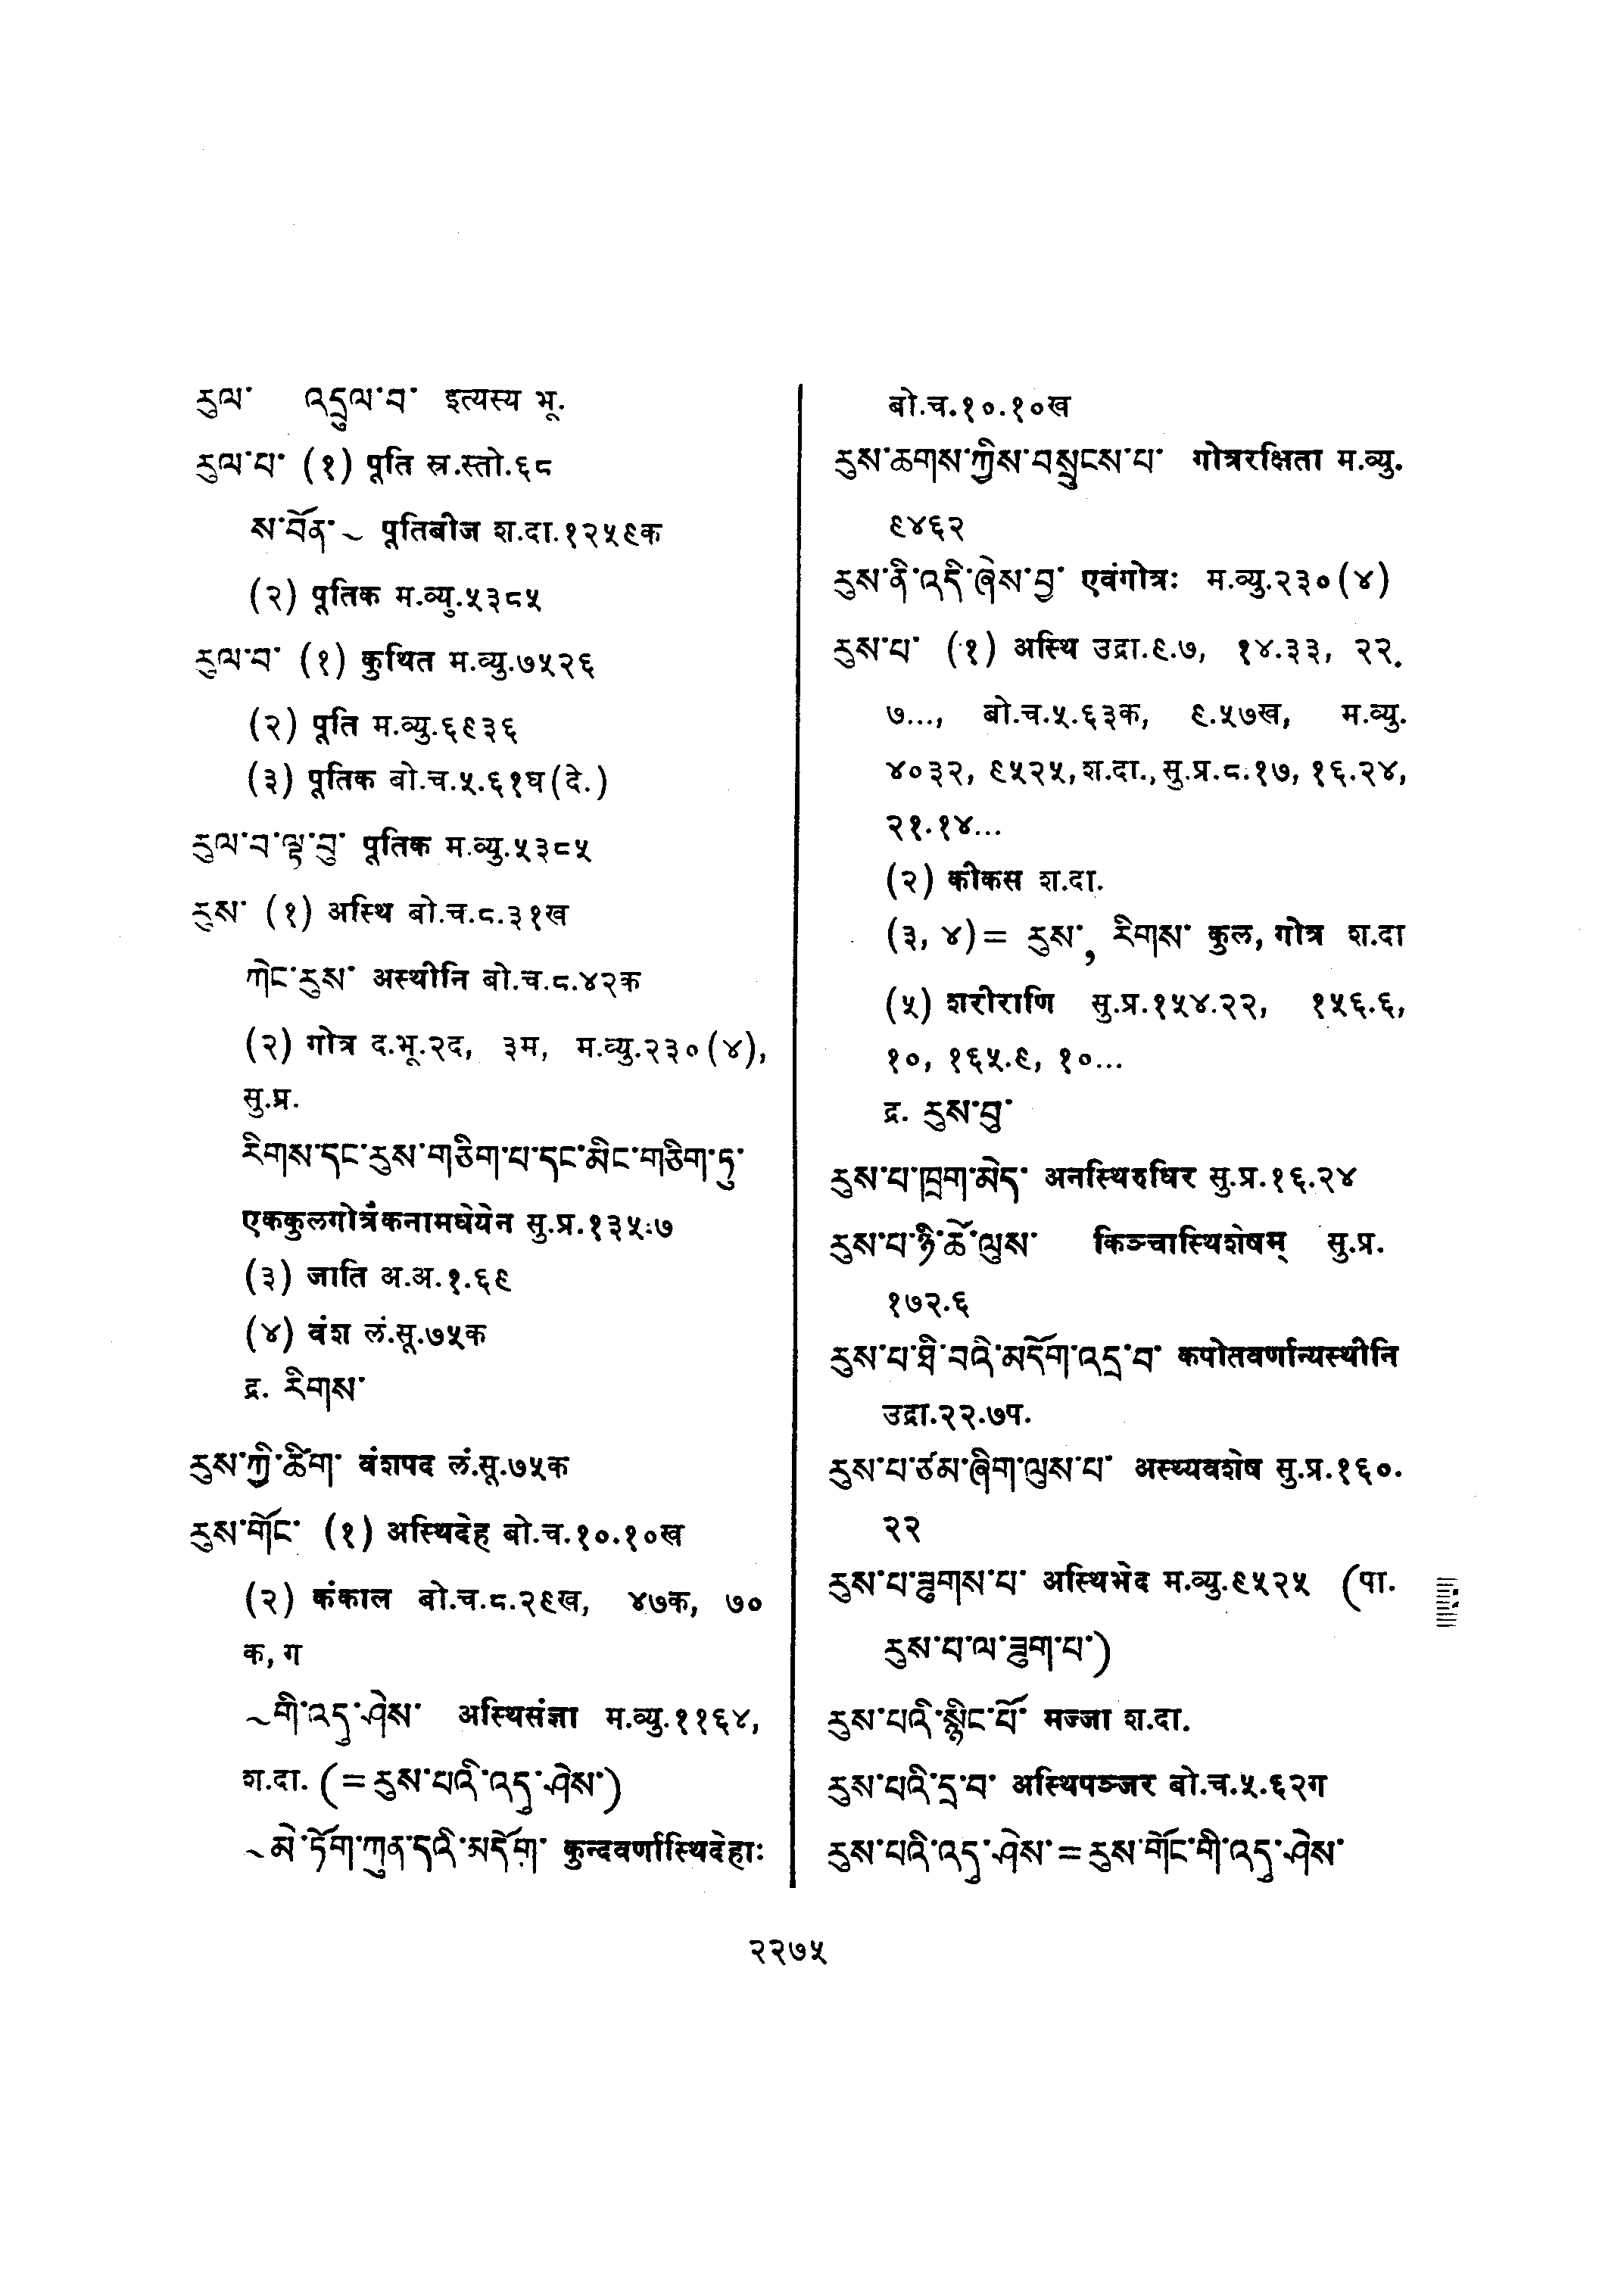 རུལ་ འདྲུལ་བ་ इत्यस्य भू.
རུལ་པ་ (१) पूति स्र.स्तो.६८
ས་བོན་~ पूतिबीज श.दा.१२५९क
(२) पूतिक म.व्यु.५३८५
རུལ་བ་ (१) कुथित म.व्यु.७५२६
(२) पूति म.व्यु.६९३६
(३) पूतिक बो.च.५.६१घ(दे.)
རུལ་བ་ལྟ་བུ་ पूतिक म.व्यु.५३८५
རུས་ (१) अस्थि बो.च.८.३१ख
ཀེང་རུས་ अस्थीनि बो.च.८.४२क
(२) गोत्र द.भू.२द, ३म, म.व्यु.२३०(४),
सु.प्र.
རིགས་དང་རུས་གཅིག་པ་དང་མིང་གཅིག་ཏུ་
एककुलगोत्रैकनामधेयेन सु.प्र.१३५.७
(३) जाति अ.अ.१.६९
(४) वंश लं.सू.७५क
द्र. རིགས་
རུས་ཀྱི་ཚིག་ वंशपद लं.सू.७५क
རུས་གོང་ (१) अस्थिदेह बो.च.१०.१०ख
(२) कंकाल बो.च.८.२९ख, ४७क, ७०
क, ग
~གི་འདུ་ཤེས་ अस्थिसंज्ञा म.व्यु.११६४,
श.दा. (= རུས་པའི་འདུ་ཤེས་)
~མེ་ཏོག་ཀུན་དའི་མདོག་ कुन्दवर्णास्थिदेहाः
बो.च.१०.१०ख
རུས་ཆགས་ཀྱིས་བསྲུངས་པ་ गोत्ररक्षिता म.व्यु.
९४६२
རུས་ནི་འདི་ཞེས་བྱ་ एवंगोत्रः म.व्यु.२३०(४)
རུས་པ་ (१) अस्थि उद्रा.९.७, १४.३३, २२.
७..., बो.च.५.६३क, ९.५७ख, म.व्यु.
४०३२, ९५२५, श.दा., सु.प्र.८.१७, १६.२४,
२१.१४...
(२) कीकस श.दा.
(३, ४)= རུས་, རིགས་ कुल, गोत्र श.दा
(५) शरीराणि सु.प्र.१५४.२२, १५६.६,
१०, १६५.९, १०...
द्र. རུས་བུ་
རུས་པ་ཁྲག་མེད་ अनस्थिरुधिर सु.प्र.१६.२४
རུས་པ་ཉི་ཚེ་ལུས་ किञ्चास्थिशेषम् सु.प्र.
१७२.६
རུས་པ་ཐི་བའི་མདོག་འདྲ་བ་ कपोतवर्णान्यस्थीनि
उद्रा.२२.७प.
རུས་པ་ཙམ་ཞིག་ལུས་པ་ अस्थ्यवशेष सु.प्र.१६०.
२२
རུས་པ་ཟུགས་པ་ अस्थिभेद म.व्यु.९५२५ (पा.
རུས་པ་ལ་ཟུག་པ་)
རུས་པའི་སྙིང་པོ་ मज्जा श.दा.
རུས་པའི་དྲ་བ་ अस्थिपञ्जर बो.च.५.६२ग
རུས་པའི་འདུ་ཤེས་ = རུས་གོང་གི་འདུ་ཤེས་
२२७५